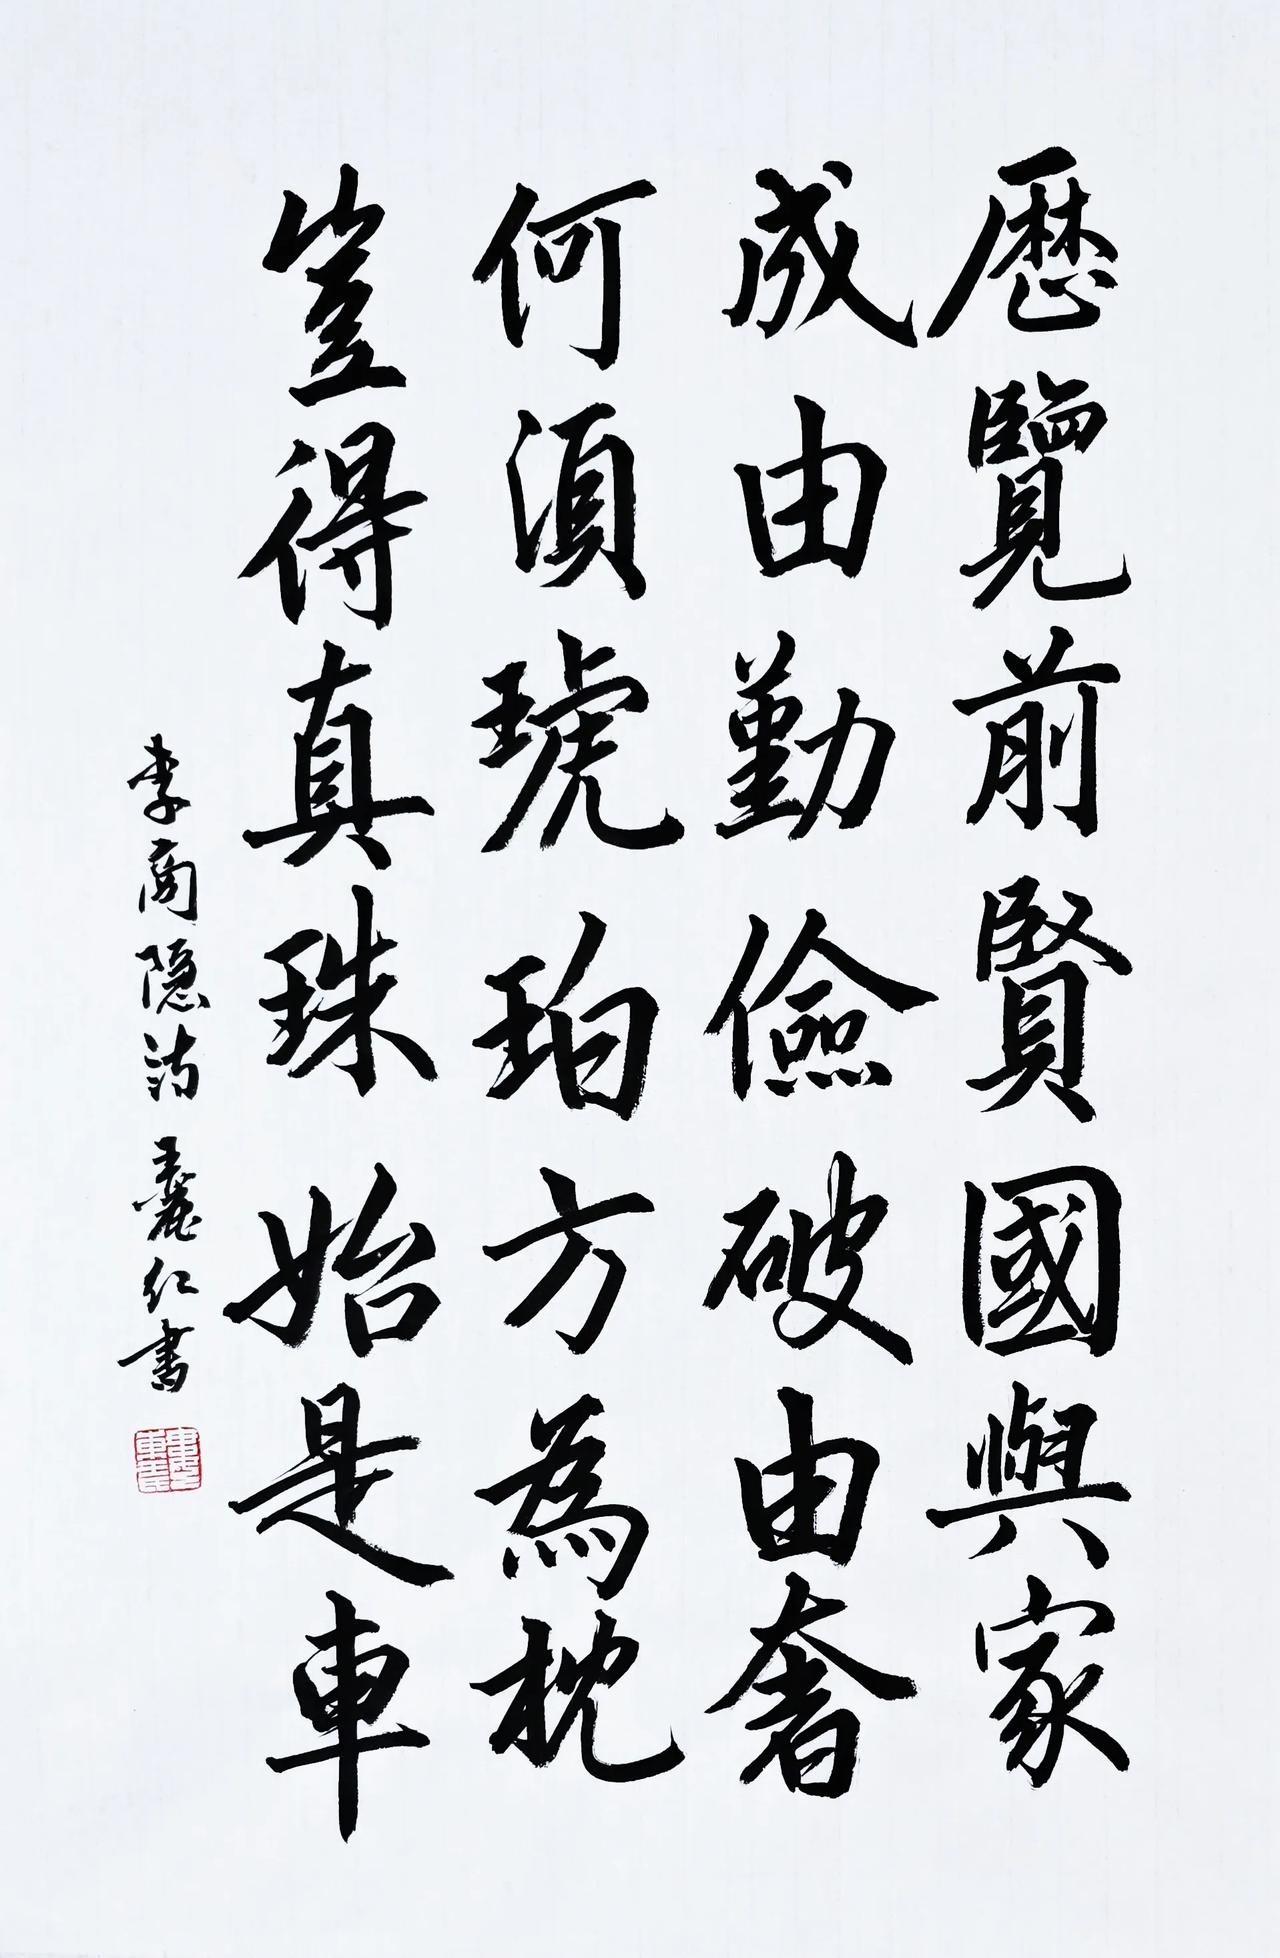 歷覽前賢國與家
成由勤儉破由奢
何湏琥珀方為枕
豈得真珠始是車
李商隐詩 王麗红書